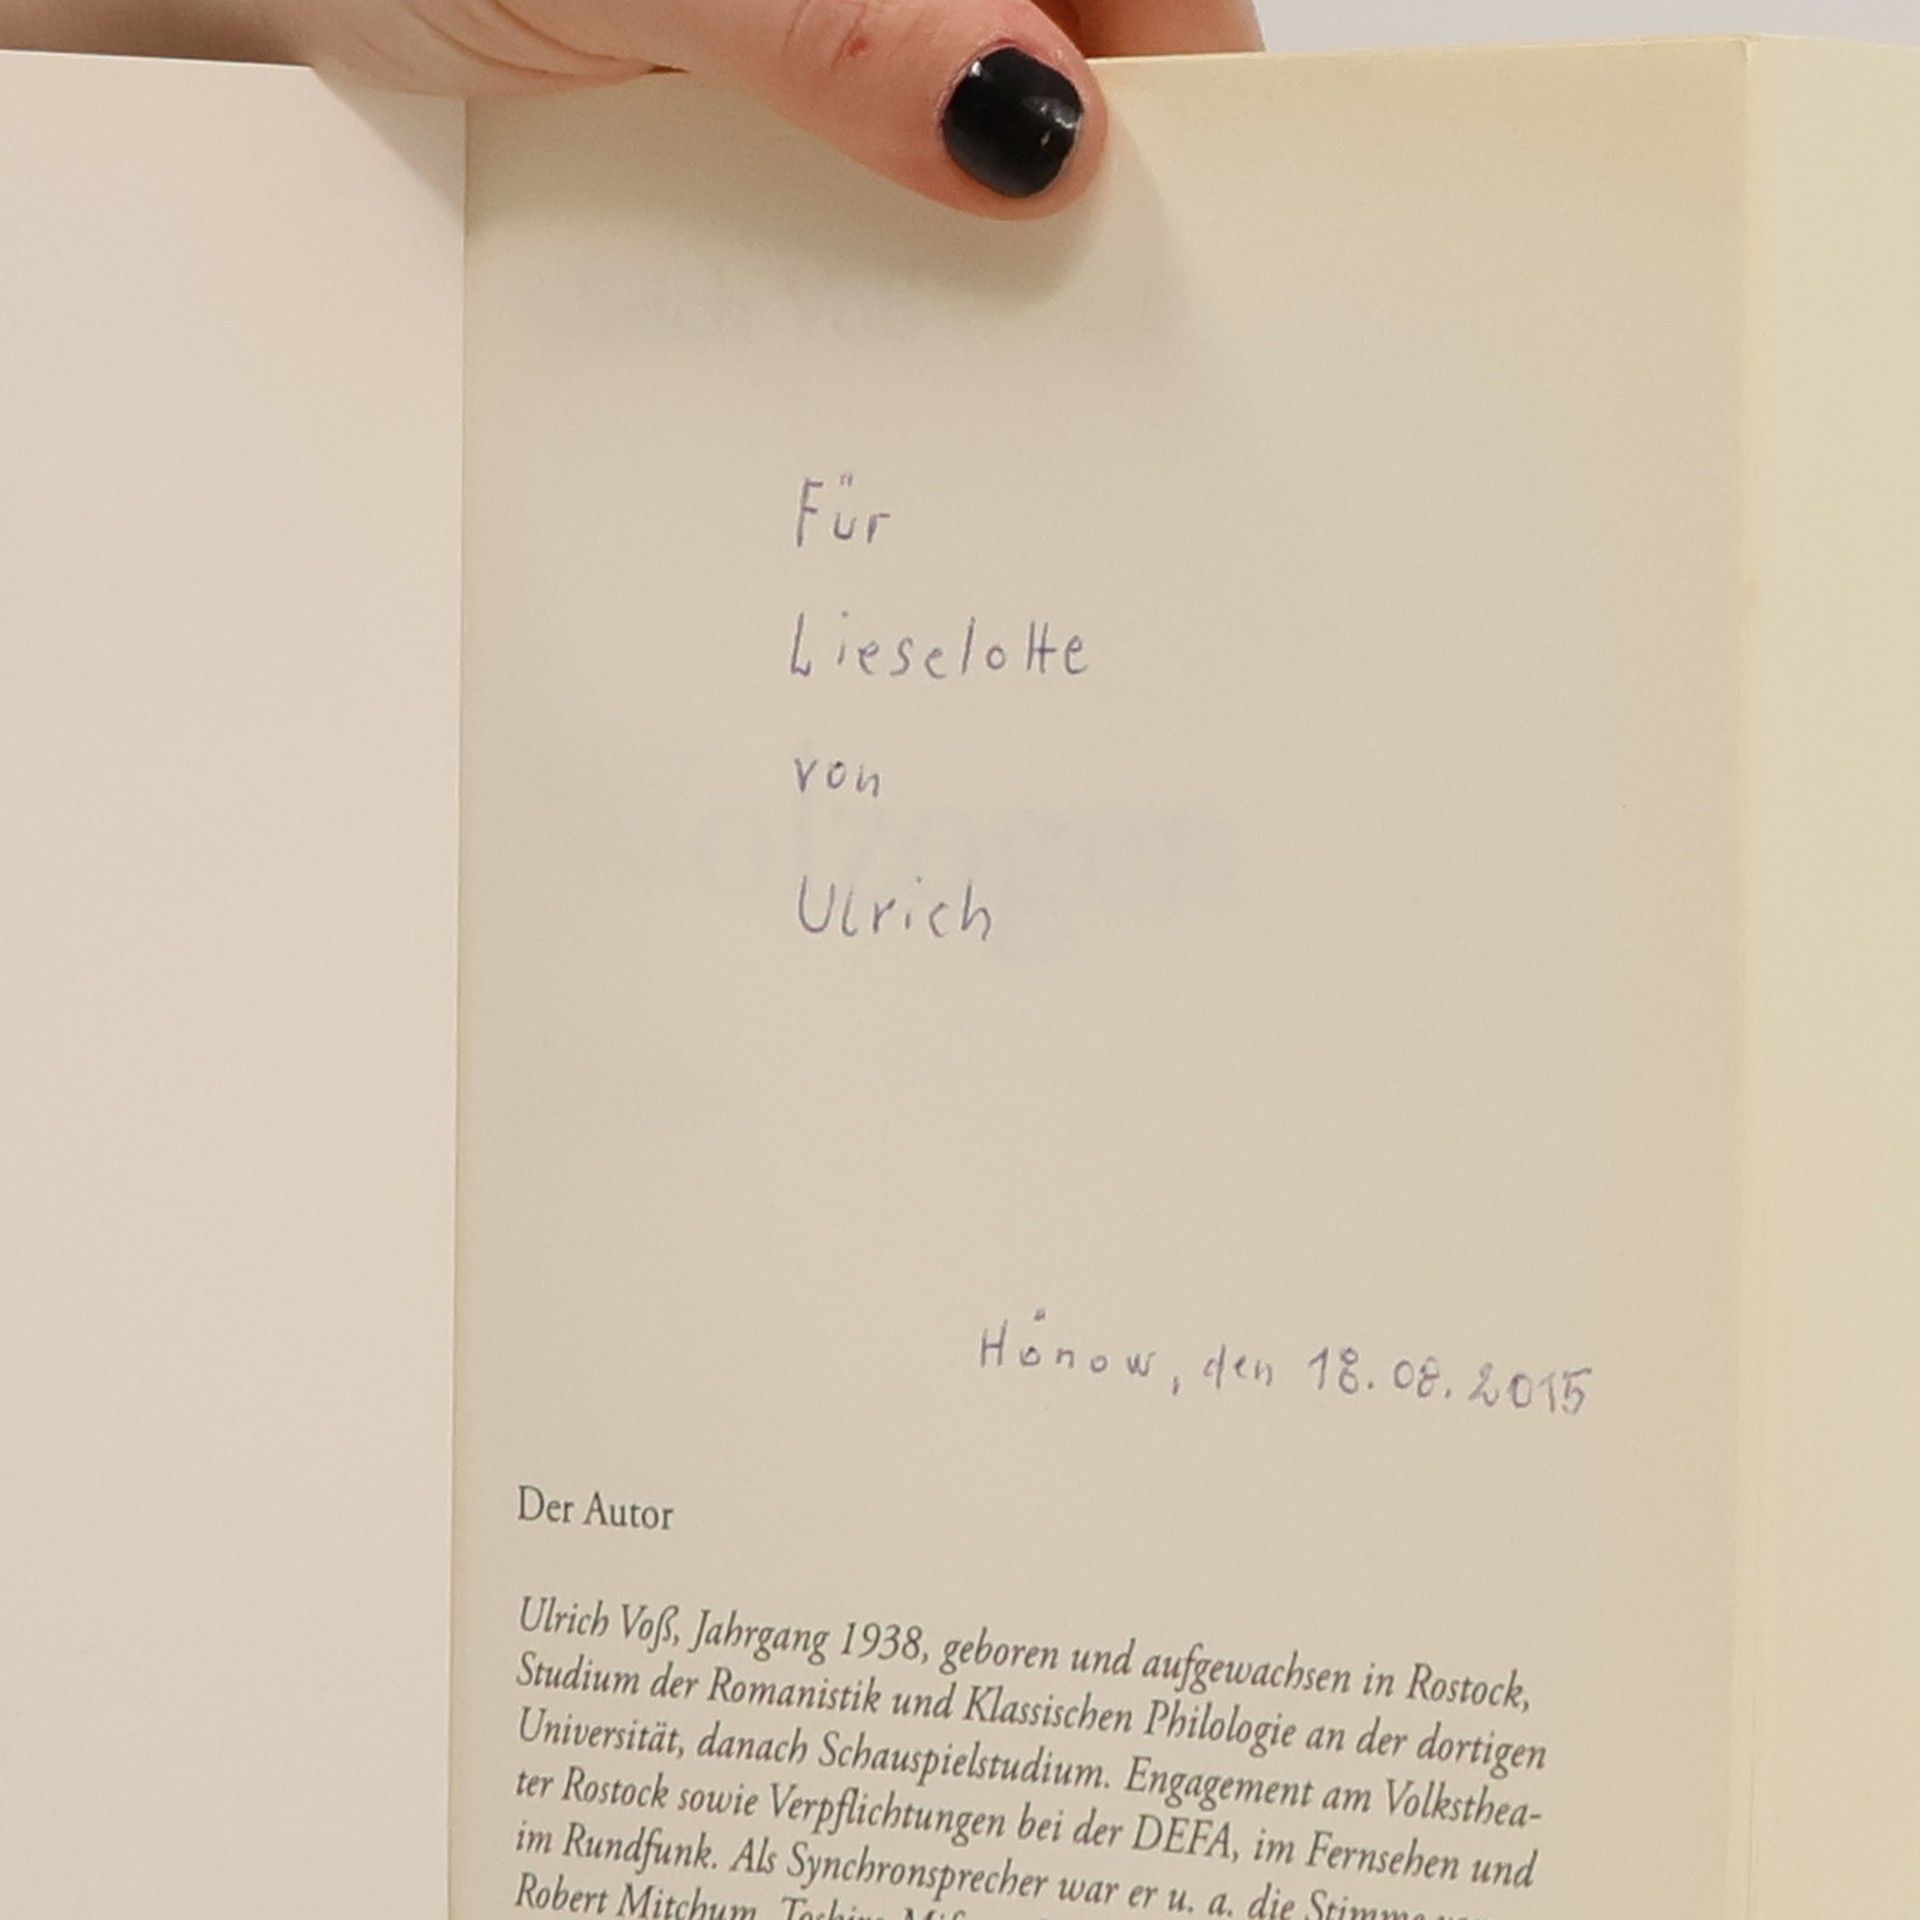 Für
Lieselotte
von
Ulrich
Hönow, den 18.08.2015
Der Autor
Ulrich Voß, Jahrgang 1938, geboren und aufgewachsen in Rostock,
Studium der Romanistik und Klassischen Philologie an der dortigen
Universität, danach Schauspielstudium. Engagement am Volksthea-
ter Rostock sowie Verpflichtungen bei der DEFA, im Fernsehen und
im Rundfunk. Als Synchronsprecher war er u. a. die Stimme
Robert Mitchum,